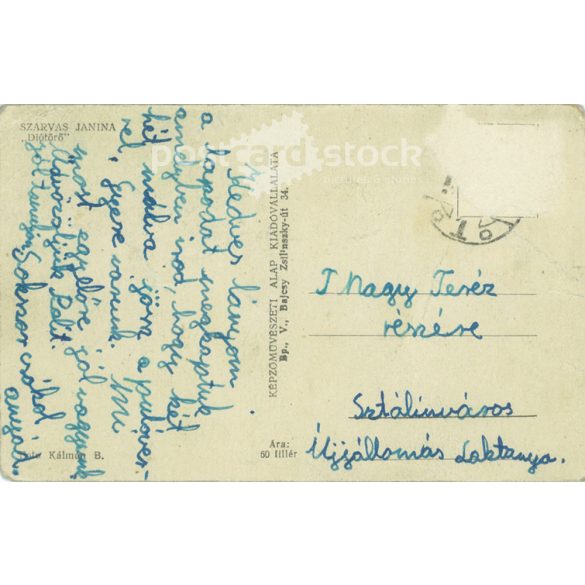 SZARVAS JANINA
„Diótörő"
Kedves lányom
a lapodat megkaptuk
amelyben irod, hogy két
hét mulva jösz a pulóver-
rel. Gyere várunk. Mi
most egyelőre jól vagyunk
Bélit.
jól tanulj. Sokszor csókol
anyád.
Foto Kálmán B.
KÉPZŐMŰVÉSZETI ALAP KIADÓVÁLLALATA
Bp., V., Bajcsy Zsilinszky-út 34.
Ára:
60 fillér
T. Nagy Teréz
részére
Sztálinváros
Ujjállomás Laktanya.
postcard stock